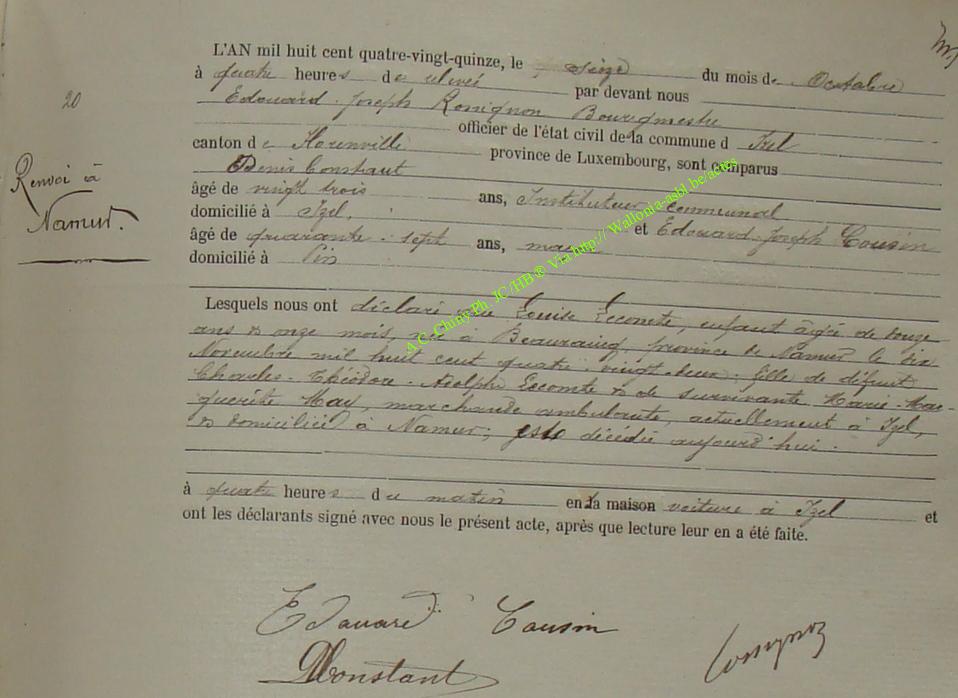 L'AN mil huit cent quatre-vingt-quinze, le seize du mois de Octobre
à quatre heures de relevée par devant nous
20
Edouard Joseph Rossignon Bourgmestre
officier de l'état civil de la commune d Izel
canton de Florenville province de Luxembourg, sont comparus
Renvoi à
Namur.
Denis Constant
âgé de vingt trois ans, Instituteur communal
domicilié à Izel, et Edouard Joseph Cousin
âgé de quarante-sept ans,
domicilié à Pin
A.C. Chiny Ph JC/HB® Via http://Wallonia-asbl.be/actes
Lesquels nous ont déclaré que Louise Lecomte, enfant âgée de douze
ans & onze mois, née à Beauraing province de Namur le six
Novembre mil huit cent quatre-vingt-deux, fille de défunt
Charles-Théodore-Adolphe Lecomte & de survivante Marie-Mar-
guerite May, marchande ambulante, actuellement à Izel,
& domicilié à Namur; est décédée aujourd'hui.
à quatre heures du matin en la maison voiture à Izel et
ont les déclarants signé avec nous le présent acte, après que lecture leur en a été faite.
Edouard Cousin
DConstant
Rossignon